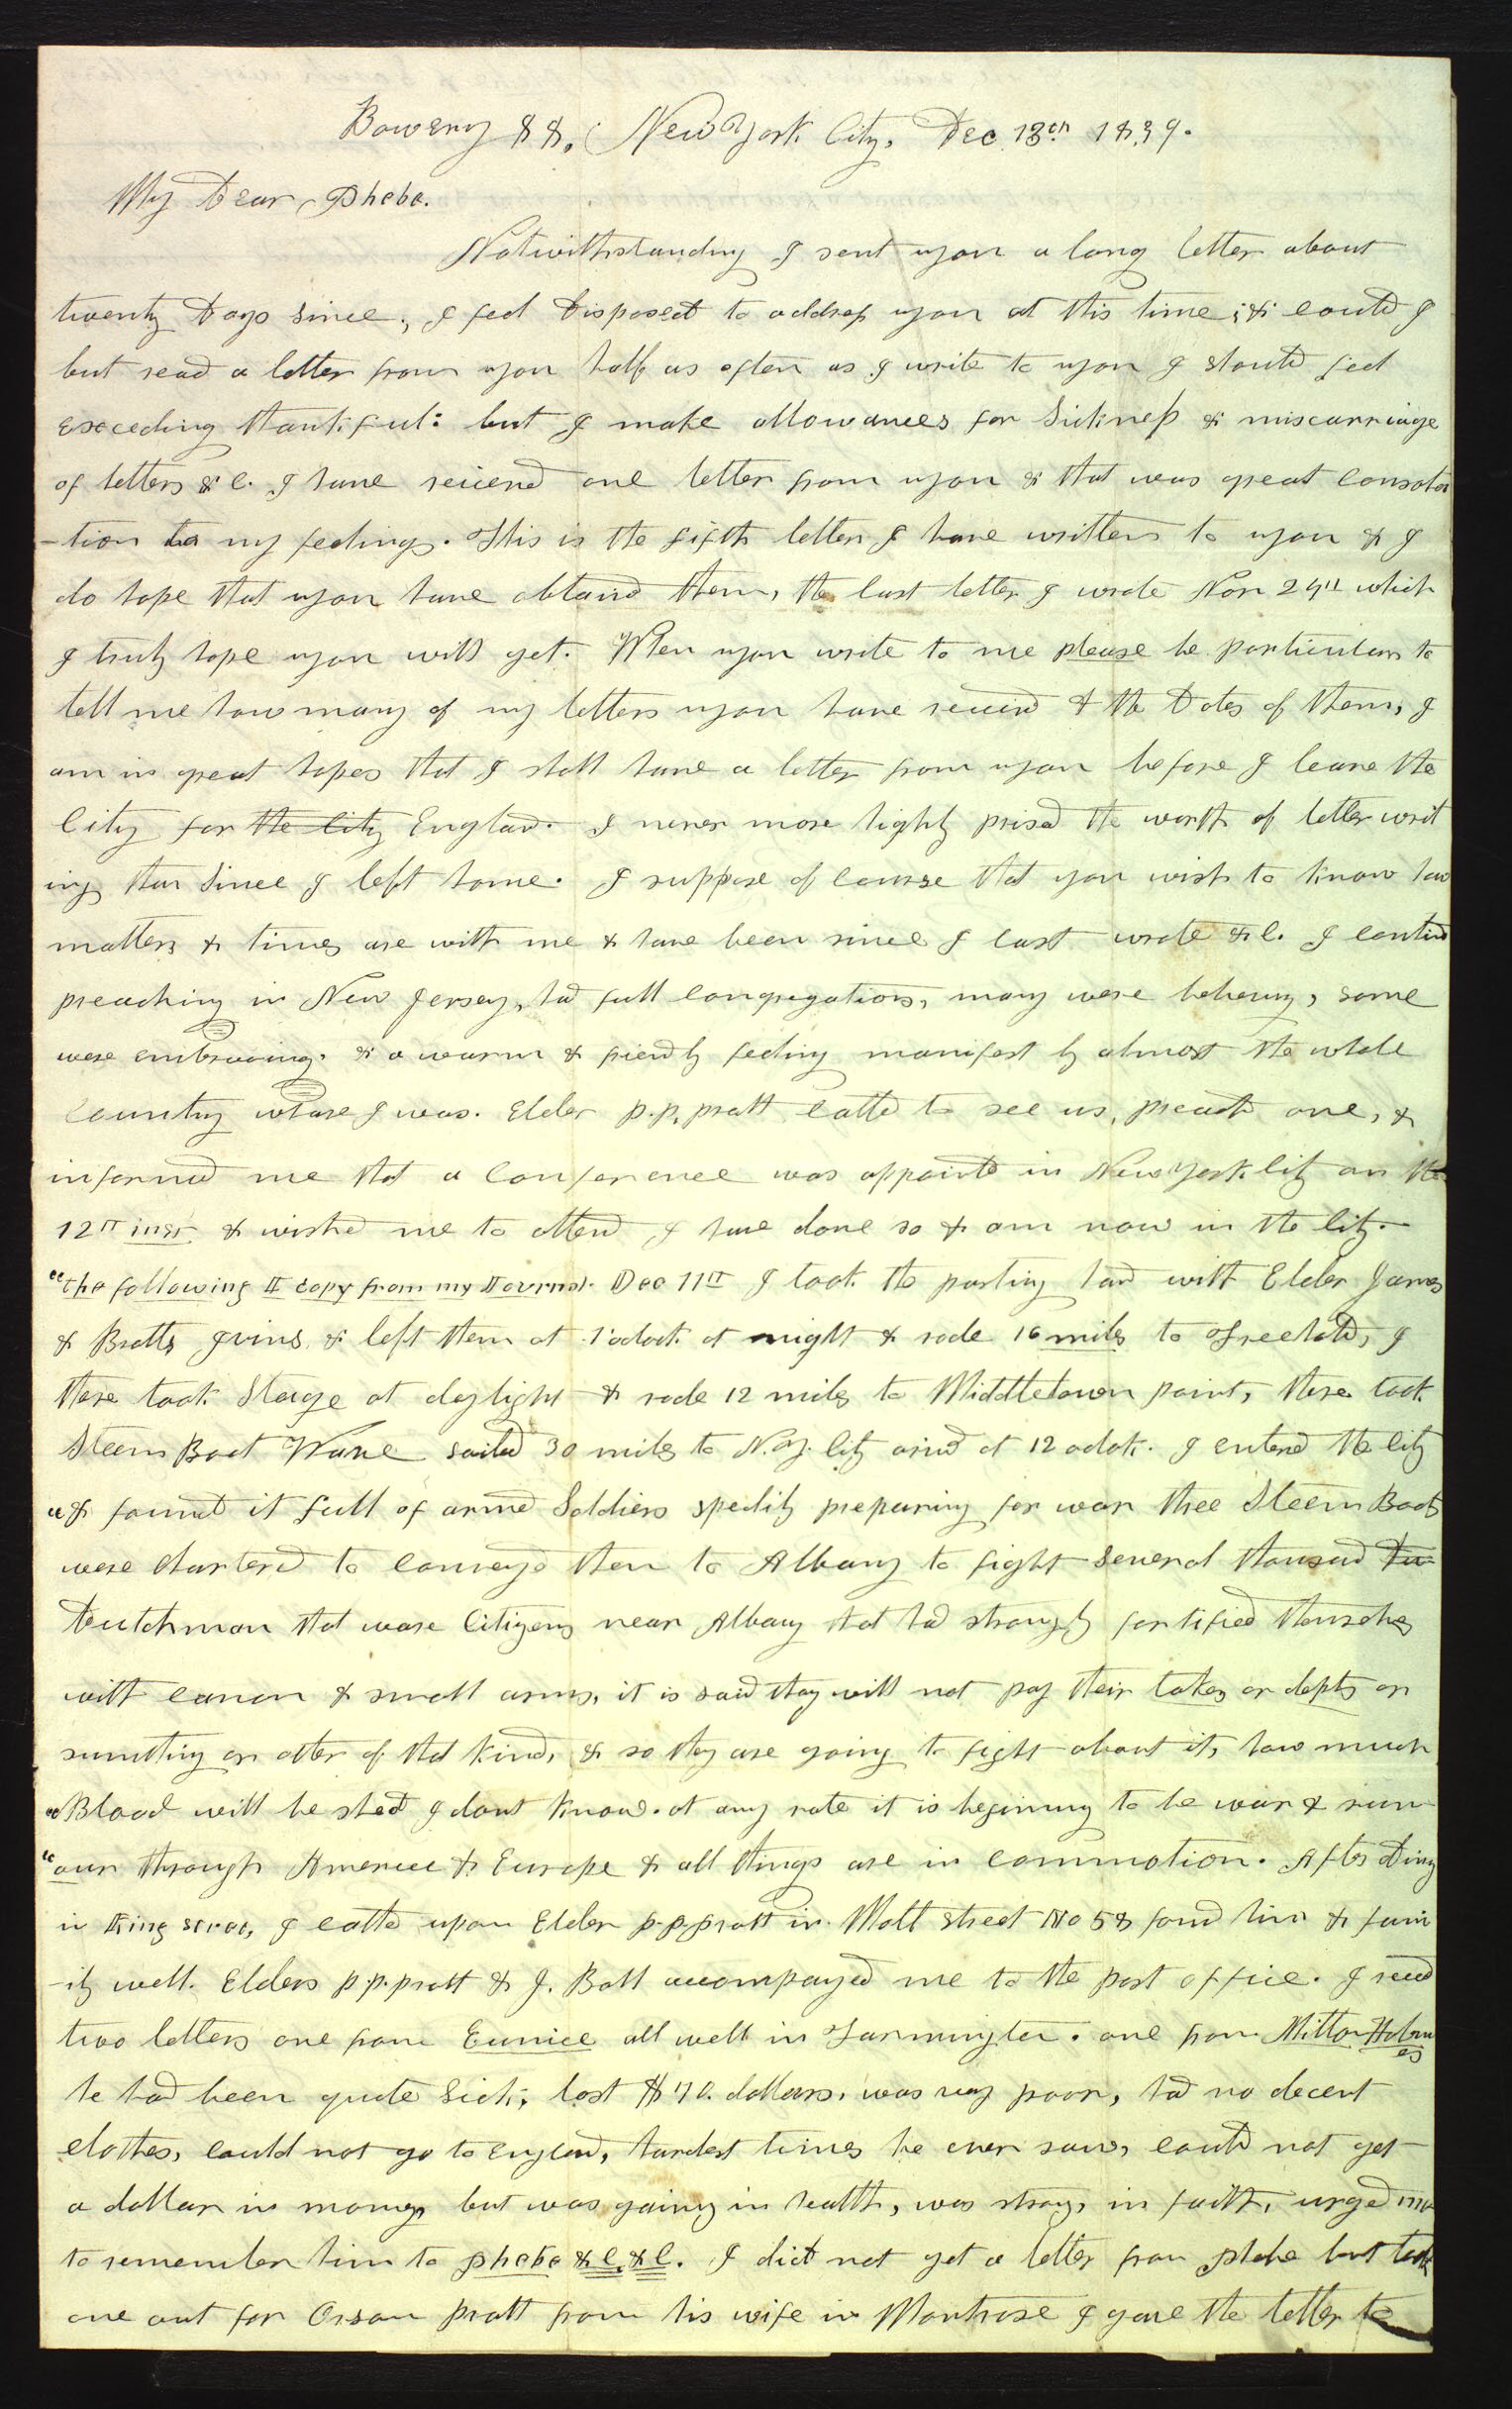 Bowery 88, New York City, Dec 13th 1839.
My Dear Phebe.
Notwithstanding I sent you a long letter about
twenty Days since, I feel Disposed to address you at this time; & could I
but read a letter from you half as often as I write to you I should feel
exceeding thankful: but I make allowances for Sickness & miscarriage
of letters &c. I have reciend one letter from you & that was great consola
-tion to my feelings. This is the fifth letter I have written to you & I
do hope that you have obtaind them, the last letter I wrote Nov 24th which
I truly hope you will get. When you write to me please be particular to
tell me how many of my letters you have receivd & the Dates of them, I
am in great hopes that I shall have a letter from you before I leave the
City for the City England. I never more highly prised the worth of letter writ
ing than Since I left home. I suppose of course that you wish to know how
matters & times are with me & have been since I last wrote &c. I contind
preaching in New Jersey, had full congregations, many were believing, some
were embraceing. & a warm & friendly feeling manifest by almost the whole
country whare I was. Elder P. P. Pratt calld to see us, preachd one, &
informed me that a conference was appointd in New York City on the
12th inst & wished me to attend I have done so & am now in the City.
"the following I copy from my Journal. Dec 11th I took the parting hand with Elder James
& Brother Ivins, & left them at 1 oclock at night & rode 16 miles to Freehold, I
there took Stage at daylight & rode 12 miles to Middletown point, there took
Steem Boat Wave sailed 30 miles to N.Y. City arivd at 12 oclok. I enterd the city
"& found it full of armed Soldiers spedily preparing for war thee Steem Boats
were chartered to conveyd then to Albany to fight several thousand Du
Dutchman that ware Citizens near Albany that had strongly fortified themselves
with canon & small arms, it is said thay will not pay their takes or depts or
sumthing or other of that kind, & so they are going to fight about it, how much
"Blood will be shed I dont know. at any rate it is begining to be war & rum
"our through America & Europe & all things are in commotion. After dining
in King street, I calld upon Elder P. P. Pratt in Mott Street No 58 found him & fam
-ily well. Elders P. P. Pratt & J. Ball accompayed me to the post office. I recd
two letters one from Eunice all well in Farmington. one from Milton Holm
es
he had been quite Sick, lost $70. dollars, was very poor, had no decent
clothes, could not go to England, hardest times he ever saw, could not get
a dollar in money, but was gaining in health, was strong in faith, urged me
to remember him to Phebe &c. &c. I did not get a letter from Phebe but took
one out for Orson Pratt from his wife in Montrose I gave the letter to